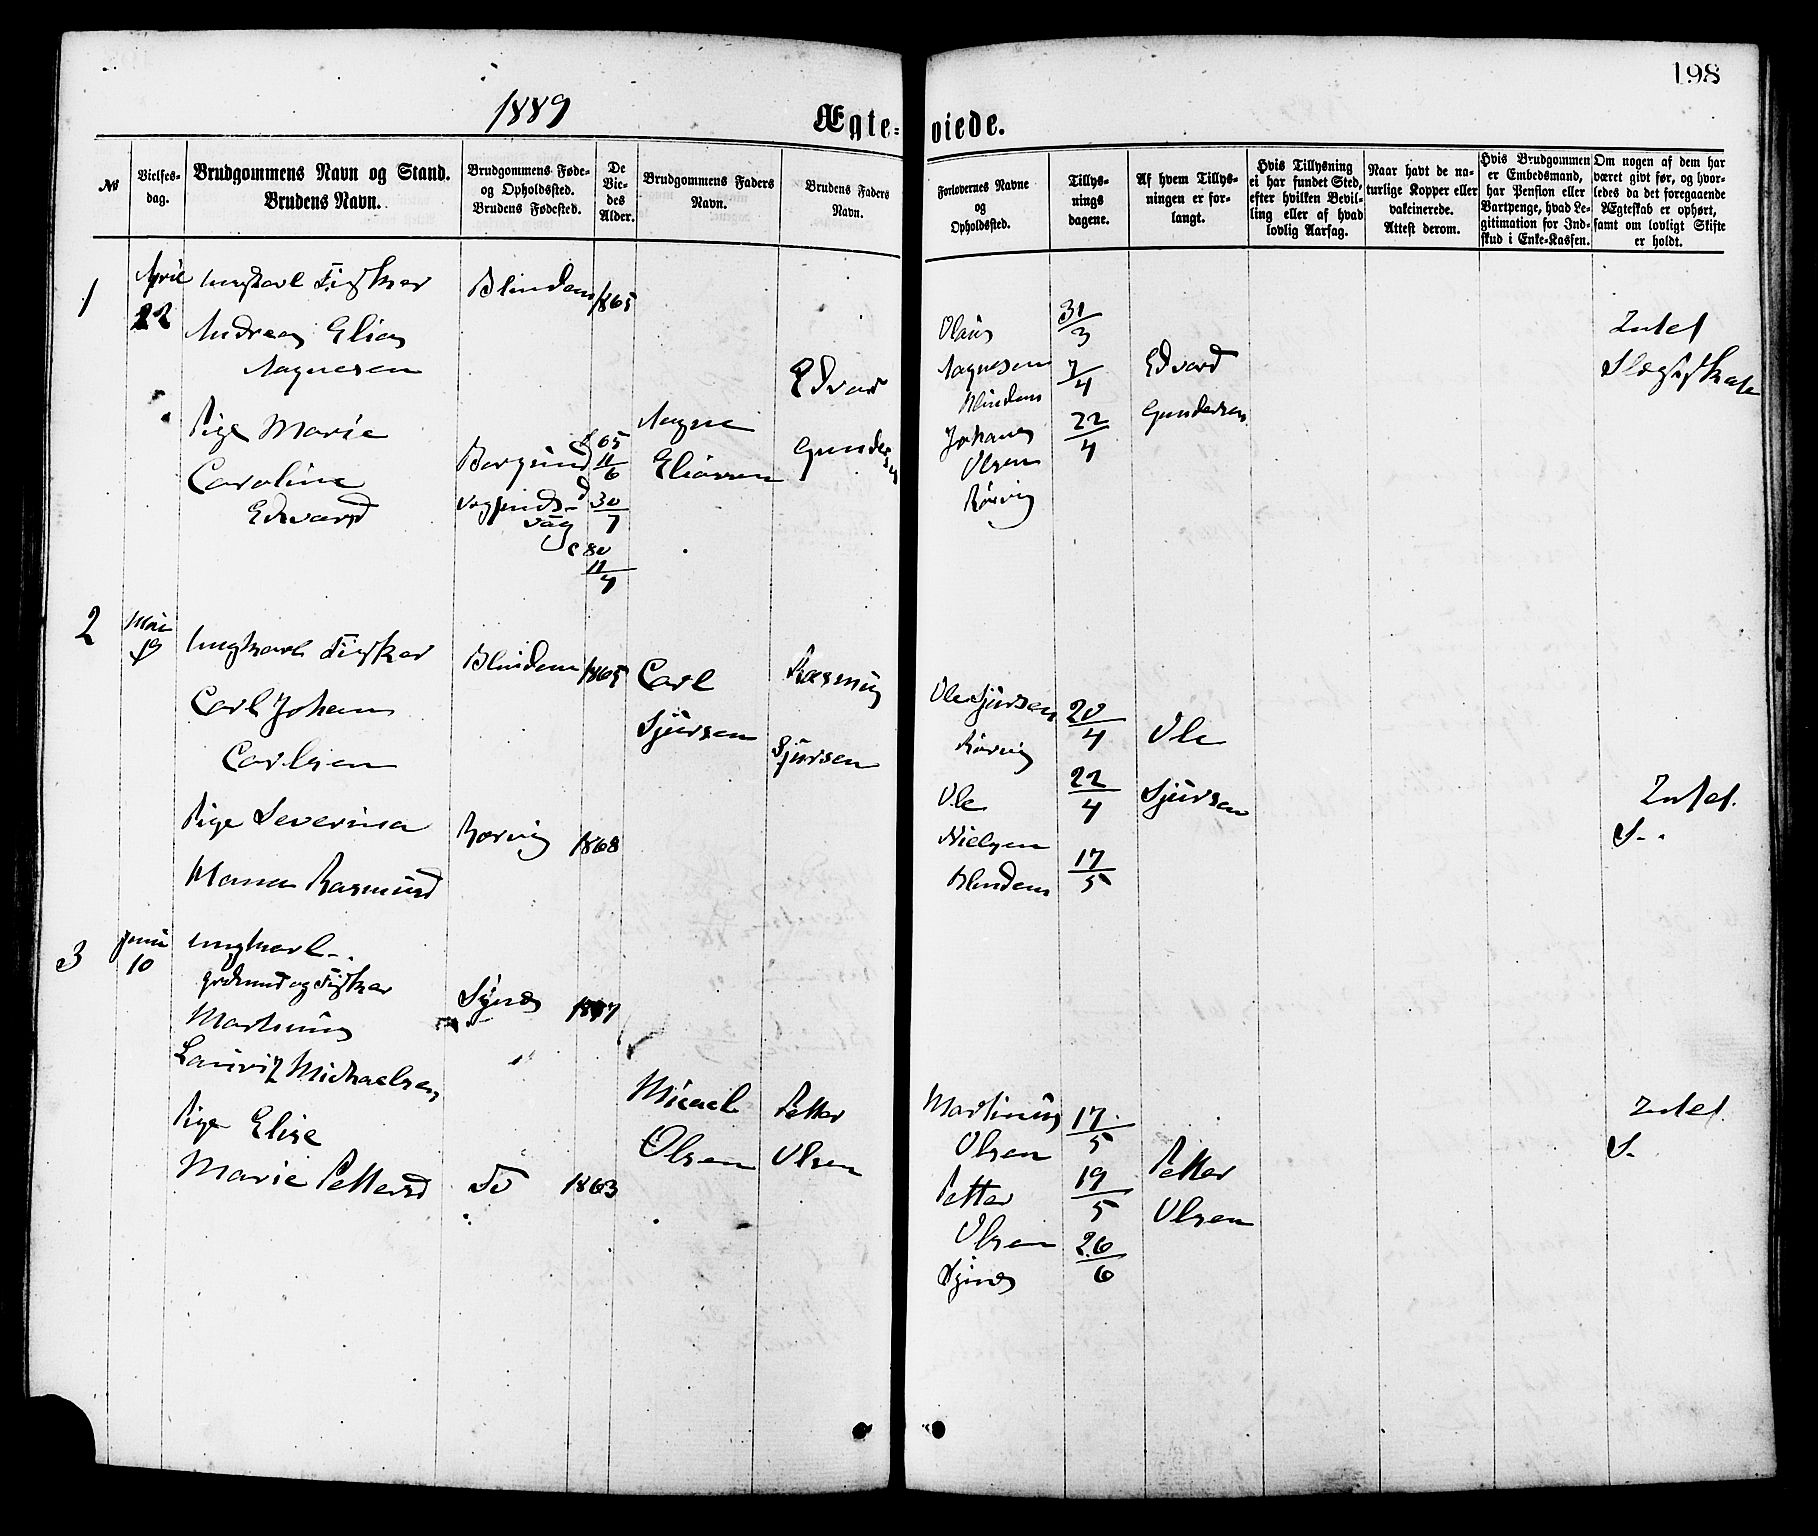 198
1889
Ægte-viede.
№
Vielses-
dag.
Brudgommens Navn og Stand.
Brudens Navn.
Brudgommens Føde-
og Opholdssted.
Brudens Fødested.
De
Vie-
des
Alder.
Brudgommens Faders
Navn.
Brudens Faders
Navn.
Forlovernes Navne
og
Opholdssted.
Tillys-
nings
dagene.
Af hvem Tillys-
ningen er for-
langt.
Hvis Tillysning
ei har fundet Sted,
efter hvilken Bevil-
ling eller af hvad
lovlig Aarsag.
Naar havt de na-
turlige Kopper eller
vakcinerede.
Attest derom.
Hvis Brudgommen
er Embedsmand,
har Pension eller
Vartpenge, hvad Le-
gitimation for Ind-
skud i Enke-Kassen.
Om nogen af dem har
været givt før, og hvor-
ledes da det foregaaende
Ægteskab er ophørt,
samt om lovligt Skifte
er holdt.
1
April
22
Ungkarl Fisker
Andreas Elias
Aagnesen
Pige Marie
Caroline
Edvard
Blindem
Borgund
1865
65
11/6
30/7
80
11/4
Aagne
Eliassen
Edvard
Gundersen
Olaus
Aagnesen
Blindem
Johannes
Olsen
Rørvig
31/3
7/4
22/4
Edvard
Gundersen
Intet
Slægtskab
2
Mai
19
Ungkarl Fisker
Carl Johan
Carlsen
Pige Severina
Mama Rasmusd
Blindem
Rørvig
1865
1868
Carl
Sjursen
Rasmus
Sjursen
Ole Sjursen
Rørvig
Ole
Nielsen
Blindem
20/4
22/4
17/5
Ole
Sjursen
Intet.
S-.
3
Juni
10
Ungkarl-.
Grdmand og Fisker
Martinus
Lauritz Michaelsen
Pige Elise
Marie Pettersd
Synes
Do
1863
Micael
Olsen
Petter
Olsen
Martinus
Olsen
Petter
Olsen
Synes
17/5
19/5
26/6
Petter
Olsen
Intet
S-